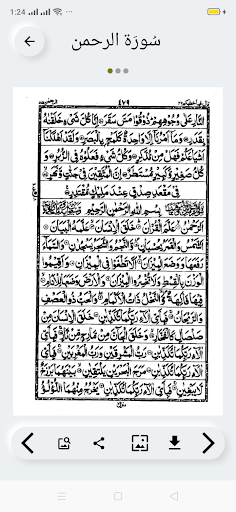 1:24
سُورَة الرحمن
٤٧٩
النَّارِ عَلٰى وُجُوْهِهِمْ ذُوْقُوْا مَسَّ سَقَرَ ۝ اِنَّا كُلَّ شَىْءٍ خَلَقْنٰهُ
بِقَدَرٍ ۝ وَمَآ اَمْرُنَآ اِلَّا وَاحِدَةٌ كَلَمْحٍۢ بِالْبَصَرِ ۝ وَلَقَدْ اَهْلَكْنَآ
اَشْيَاعَكُمْ فَهَلْ مِنْ مُّدَّكِرٍ ۝ وَكُلُّ شَىْءٍ فَعَلُوْهُ فِى الزُّبُرِ ۝ وَ
كُلُّ صَغِيْرٍ وَّكَبِيْرٍ مُّسْتَطَرٌ ۝ اِنَّ الْمُتَّقِيْنَ فِىْ جَنّٰتٍ وَّنَهَرٍ ۝
فِىْ مَقْعَدِ صِدْقٍ عِنْدَ مَلِيْكٍ مُّقْتَدِرٍ ۝
بِسْمِ اللّٰهِ الرَّحْمٰنِ الرَّحِيْمِ
اَلرَّحْمٰنُ ۝ عَلَّمَ الْقُرْاٰنَ ۝ خَلَقَ الْاِنْسَانَ ۝ عَلَّمَهُ الْبَيَانَ ۝
اَلشَّمْسُ وَالْقَمَرُ بِحُسْبَانٍ ۝ وَّالنَّجْمُ وَالشَّجَرُ يَسْجُدٰنِ ۝ وَالسَّمَآءَ
رَفَعَهَا وَوَضَعَ الْمِيْزَانَ ۝ اَلَّا تَطْغَوْا فِى الْمِيْزَانِ ۝ وَاَقِيْمُوا
الْوَزْنَ بِالْقِسْطِ وَلَا تُخْسِرُوا الْمِيْزَانَ ۝ وَالْاَرْضَ وَضَعَهَا لِلْاَنَامِ ۝
فِيْهَا فَاكِهَةٌ وَّالنَّخْلُ ذَاتُ الْاَكْمَامِ ۝ وَالْحَبُّ ذُو الْعَصْفِ
وَالرَّيْحَانُ ۝ فَبِاَىِّ اٰلَآءِ رَبِّكُمَا تُكَذِّبٰنِ ۝ خَلَقَ الْاِنْسَانَ مِنْ
صَلْصَالٍ كَالْفَخَّارِ ۝ وَخَلَقَ الْجَآنَّ مِنْ مَّارِجٍ مِّنْ نَّارٍ ۝ فَبِاَىِّ
اٰلَآءِ رَبِّكُمَا تُكَذِّبٰنِ ۝ رَبُّ الْمَشْرِقَيْنِ وَرَبُّ الْمَغْرِبَيْنِ ۝ فَبِاَىِّ
اٰلَآءِ رَبِّكُمَا تُكَذِّبٰنِ ۝ مَرَجَ الْبَحْرَيْنِ يَلْتَقِيٰنِ ۝ بَيْنَهُمَا بَرْزَخٌ
لَّا يَبْغِيٰنِ ۝ فَبِاَىِّ اٰلَآءِ رَبِّكُمَا تُكَذِّبٰنِ ۝ يَخْرُجُ مِنْهُمَا اللُّؤْلُؤُ